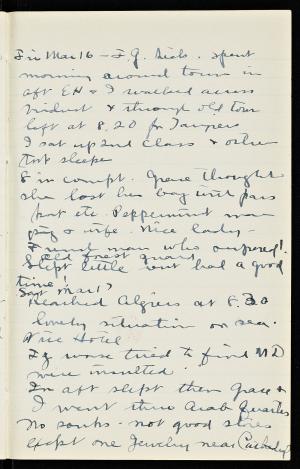 Fri Mar 16 - F. G. sick. spent
morning around town in
aft EH & I walked across
viaduct & through old town
left at 8.20 for Tangiers
I sat up 2nd class & others
took sleeper
8 in compt. Grace thought
she lost her bag with pass
port etc. Peppermint man
& wife. Nice lady -
French man who snored!
Old forest guard
Slept little but had a good
time!
Sat Mar 17
Reached Algiers at 8.30
lovely situation on sea.
Nice Hotel
F G worse tried to find MD
were insulted.
In aft slept then Grace &
I went thru Arab Quarters
No souks - not good stores
except one Jewelry near Cathedral